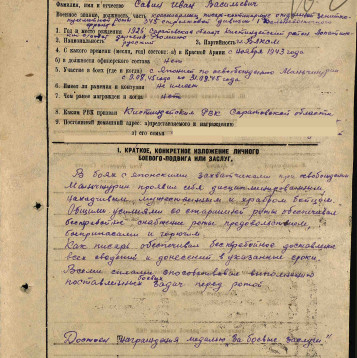 Фамилия, имя и отчество Савин Иван Васильевич
Военское звание, должность, часть
1. Год и место рождения 1926 Саратовская область район
2. Национальность русский 3. Партийность ВЛКСМ
4. С какого времени (месяц, год) состоит: а) в Красной Армии с ноября 1943 года
б) в должности офицерского состава нет
5. Участие в боях (где и когда) с Японией по освобождению Маньчжурии
с 9.08.45 по 31.08.45 год
6. Имеет ли ранения и контузии не имеет
7. Чем ранее награжден и когда нет
8. Каким РВК призван РВК Саратовской области
9. Постоянный домашний адрес: а) представляемого к награждению
а) его семьи
1. КРАТКОЕ, КОНКРЕТНОЕ ИЗЛОЖЕНИЕ ЛИЧНОГО
БОЕВОГО ПОДВИГА ИЛИ ЗАСЛУГ.
В боях с японскими захватчиками при освобождении
Маньчжурии проявил себя дисциплинированным,
находчивым, мужественным и храбрым бойцом.
Общими усилиями со старшиной роты обеспечивал
бесперебойное снабжение роты продовольствием,
боеприпасами и горючим.
Как писарь обеспечивал бесперебойное доставление
всех сведений и донесений в указанные сроки.
Всеми силами способствовал выполнению
поставленных боевых задач перед ротой.
Достоин награждения медалью "За боевые заслуги"